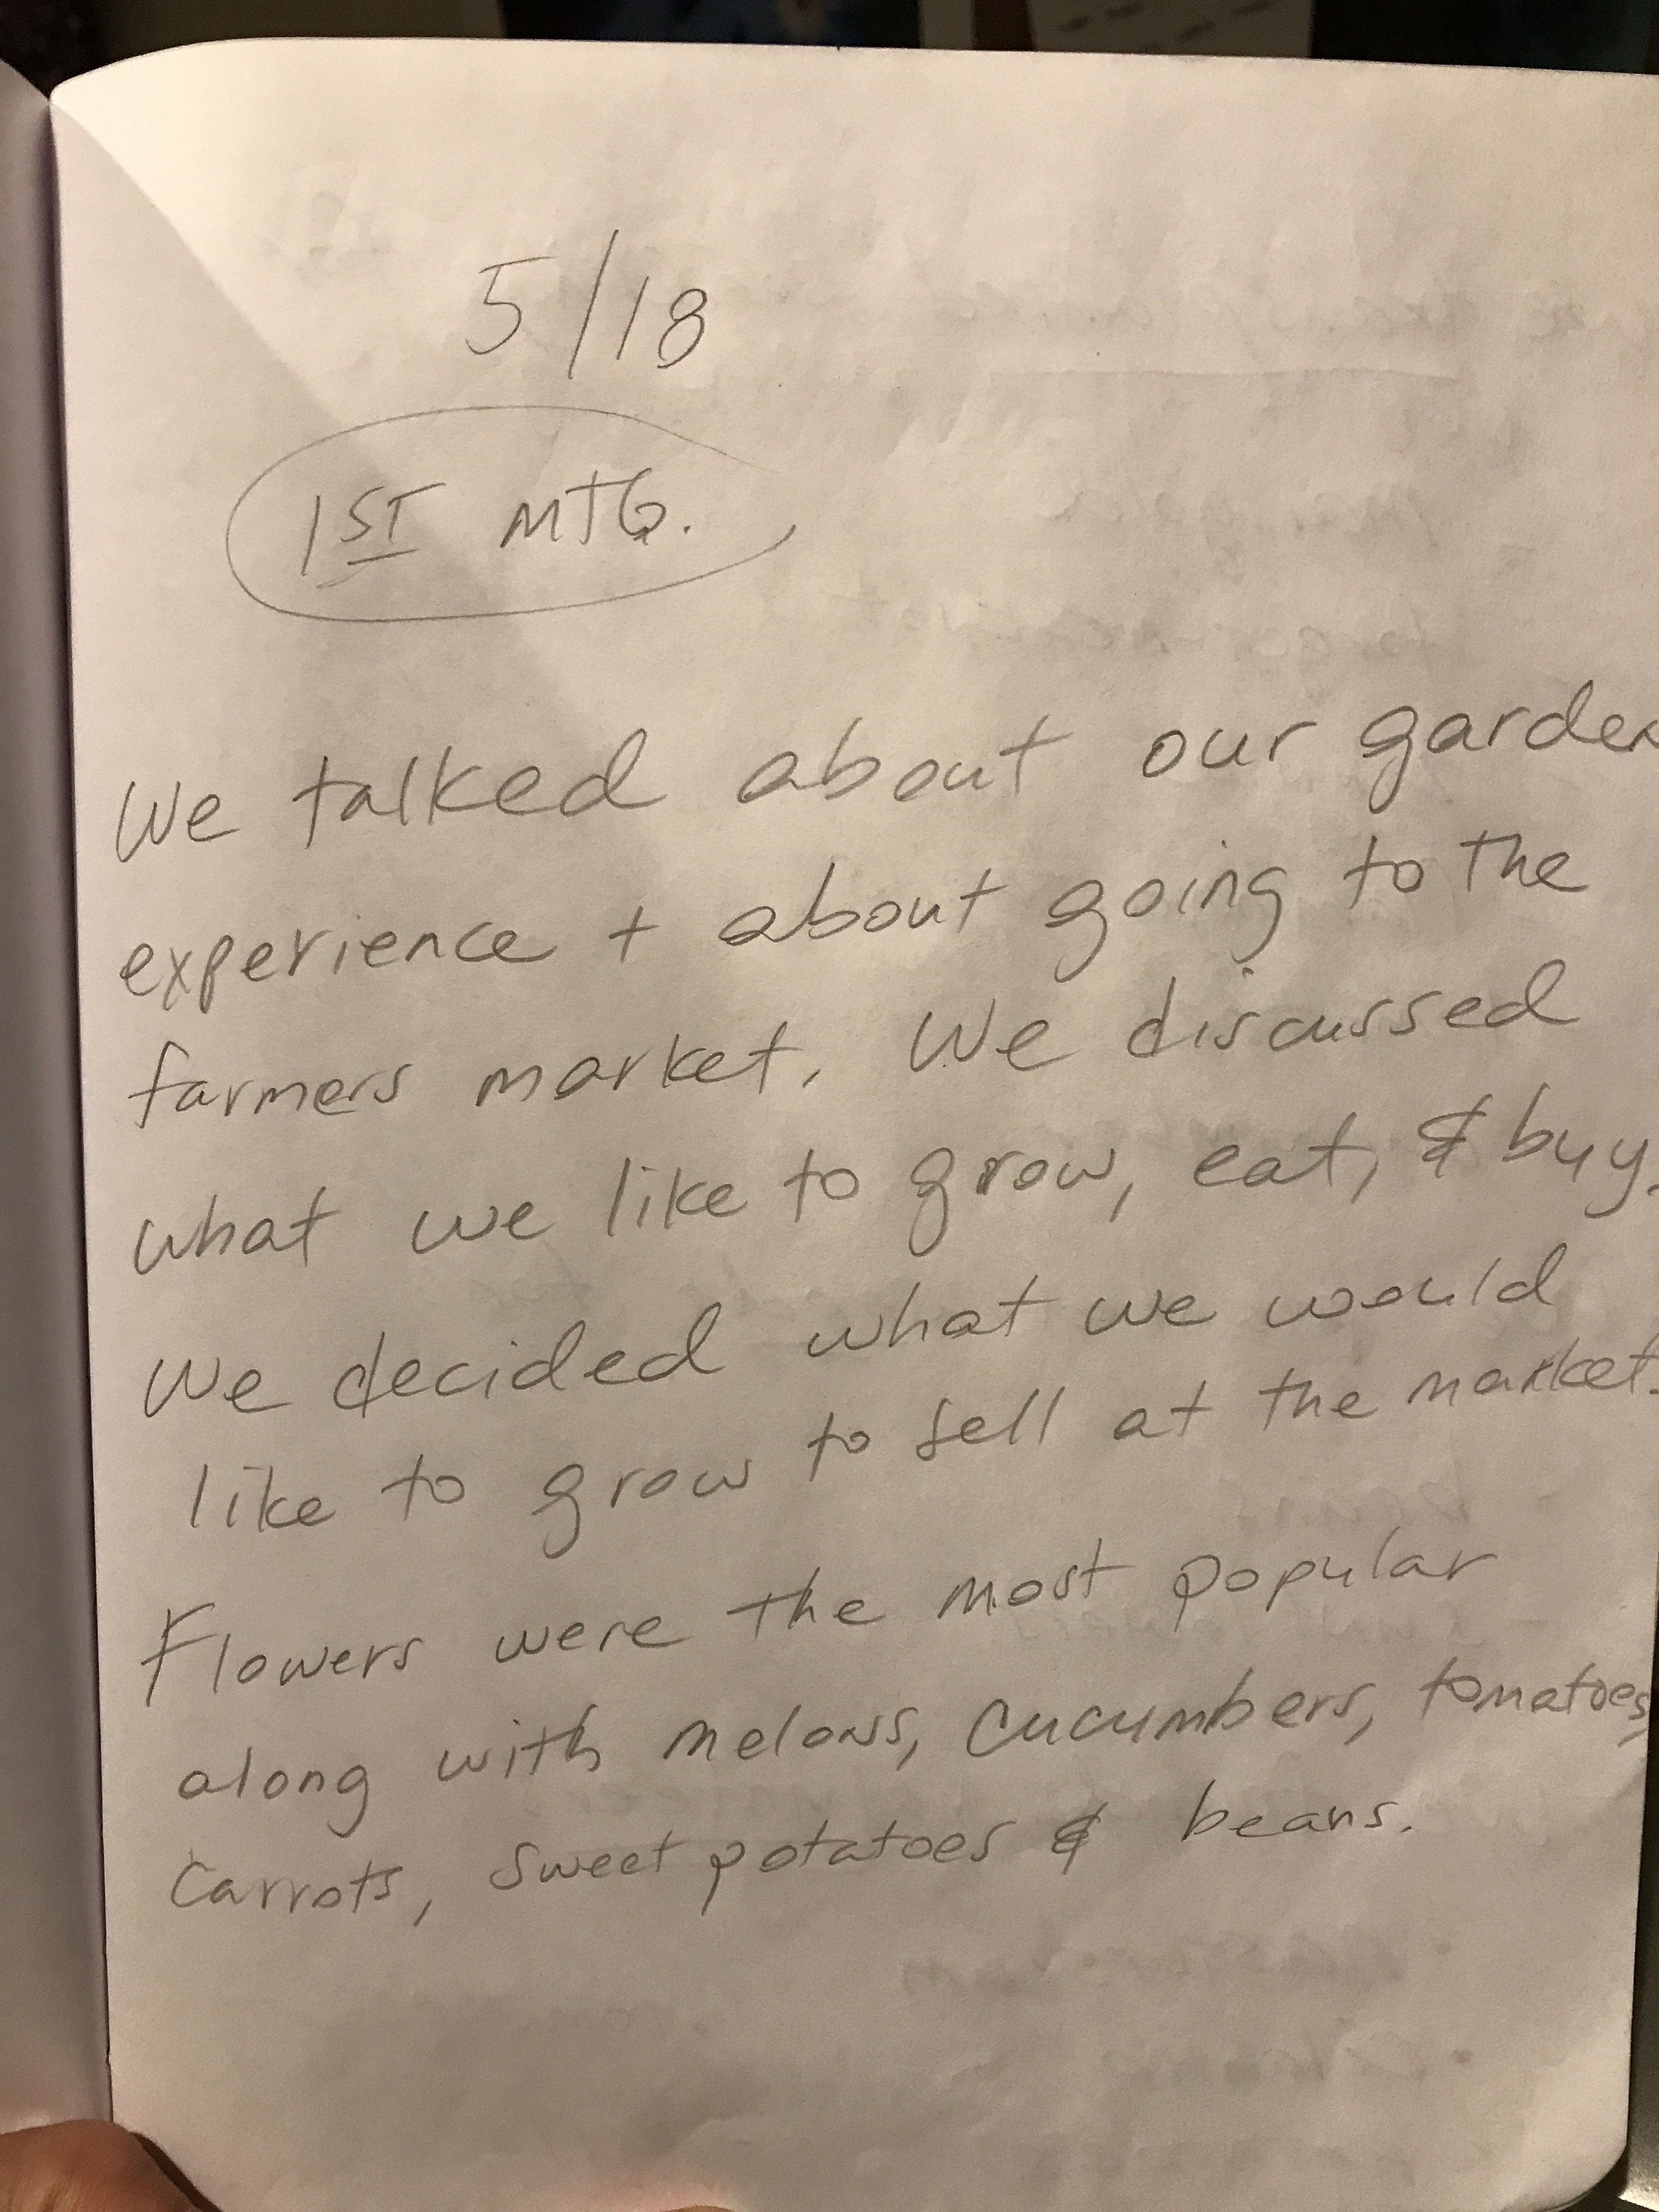 5/18
1ST MTG.
We talked about our garden
experience + about going to the
farmers market. We discussed
what we like to grow, eat, & buy.
We decided what we would
like to grow to sell at the market.
Flowers were the most popular
along with melons, cucumbers, tomatoes,
carrots, sweet potatoes & beans.